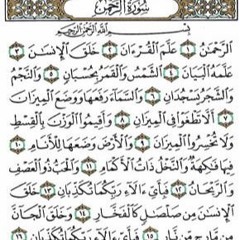 سورة الرحمن
بسم الله الرحمن الرحيم
الرَّحْمَٰنُ ١ عَلَّمَ الْقُرْءَانَ ٢ خَلَقَ الْإِنسَٰنَ ٣
عَلَّمَهُ الْبَيَانَ ٤ الشَّمْسُ وَالْقَمَرُ بِحُسْبَانٍ ٥ وَالنَّجْمُ
وَالشَّجَرُ يَسْجُدَانِ ٦ وَالسَّمَاءَ رَفَعَهَا وَوَضَعَ الْمِيزَانَ
٧ أَلَّا تَطْغَوْا فِي الْمِيزَانِ ٨ وَأَقِيمُوا الْوَزْنَ بِالْقِسْطِ
وَلَا تُخْسِرُوا الْمِيزَانَ ٩ وَالْأَرْضَ وَضَعَهَا لِلْأَنَامِ ١٠
فِيهَا فَٰكِهَةٌ وَالنَّخْلُ ذَاتُ الْأَكْمَامِ ١١ وَالْحَبُّ ذُو الْعَصْفِ
وَالرَّيْحَانُ ١٢ فَبِأَيِّ ءَالَاءِ رَبِّكُمَا تُكَذِّبَانِ ١٣ خَلَقَ
الْإِنسَٰنَ مِن صَلْصَٰلٍ كَالْفَخَّارِ ١٤ وَخَلَقَ الْجَانَّ
مِن مَّارِجٍ مِّن نَّارٍ ١٥ فَبِأَيِّ ءَالَاءِ رَبِّكُمَا تُكَذِّبَانِ ١٦